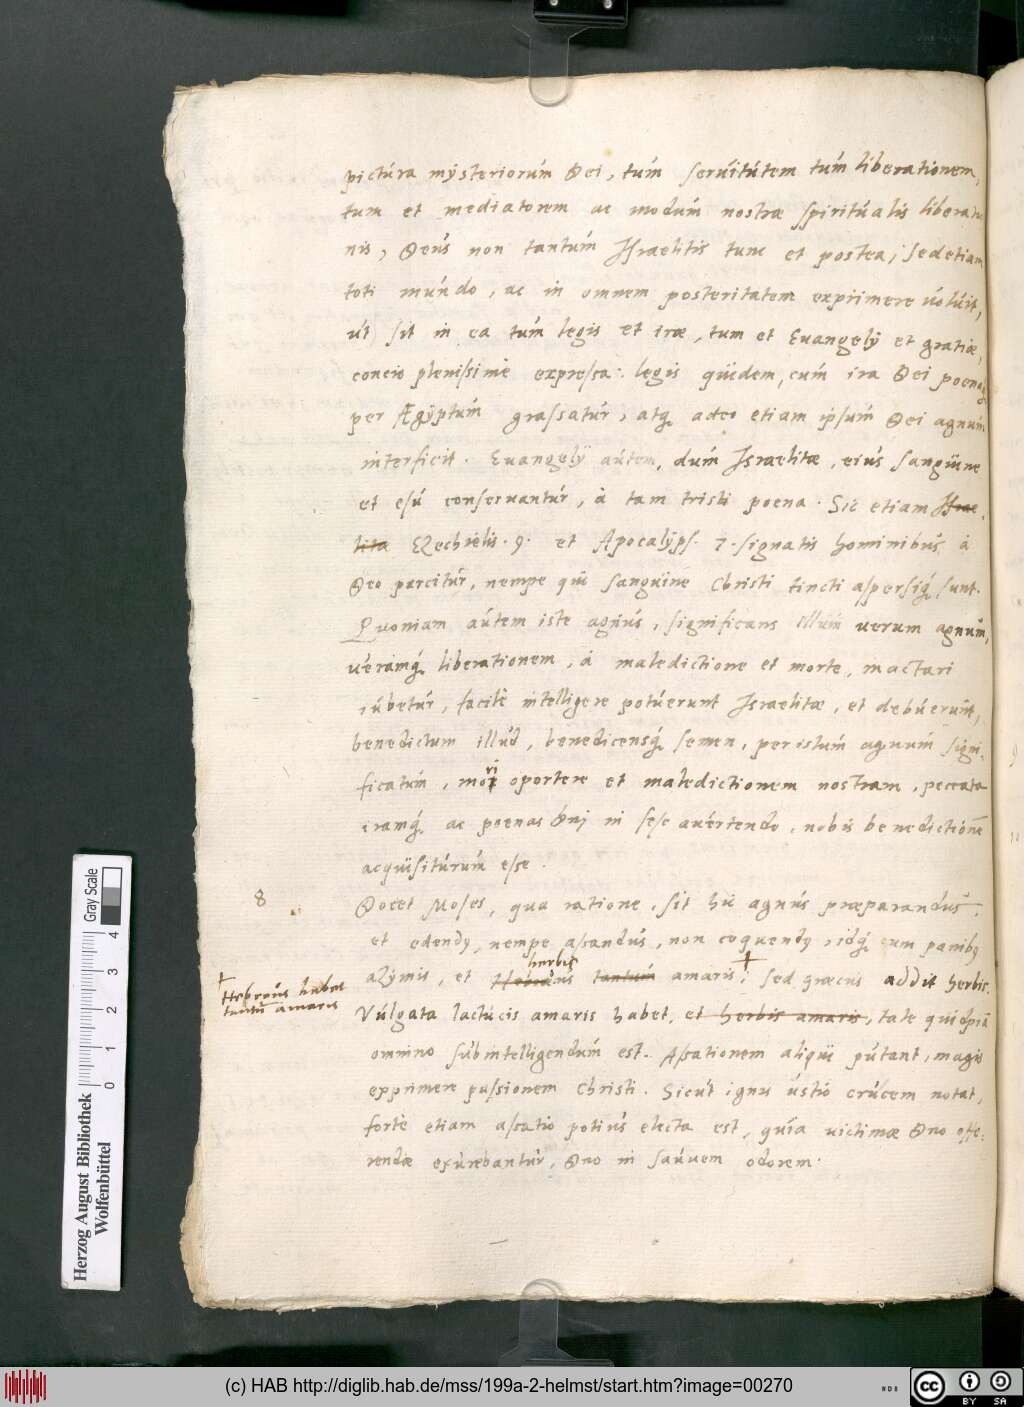 pictúra mÿsteriorúm Dei, túm servitútem túm liberationem,
tum et mediatorem ac modúm nostræ spiritúalis liberatio
nis, Deús non tantúm Israelitis tunc et postea, sed etiam
toti múndo, ac in omnem posteritatem exprimere volúit,
út sit in ea túm legis et iræ, tum et Euangelÿ et gratiæ,
concio plenissimè expressa: legis quidem, cúm ira Dei poenaq́
per Ægÿptúm grassatúr, atq́ adeo etiam ipsúm Dei agnúm
interficit. Euangelÿ aútem, dúm Israelitæ, eiús sangúine
et esú conservantúr, à tam tristi poena. Sic etiam Israe-
lita Ezechielis. 9. et Apocalÿps. 7. signatis hominibús à
Deo parcitúr, nempe qui sangúine Christi tincti aspersiq́ sunt.
Quoniam aútem iste agnús, significans illúm verum agnúm,
verámq́ liberationem, à maledictione et morte, mactari
iúbetúr, facilè intelligere potúerunt Israelitæ, et debúerúnt,
benedictum illúd, benedicensq́ semen, per istúm agnúm signi-
ficatúm, mori oportere et maledictionem nostram, peccata
iramq́ ac poenas Dnj in sese avertendo, nobis benedictionē
acqúisitúrúm esse.
8
Docet Moses, qua ratione, sit hic agnús præparandús,
et edendq, nempe assandús, non coquendq, idq́ cum panibq
herbis
azÿmis, et Hebraeús tantúm amaris: sed græcus addit herbis.
† Hebræús habet
tantū amaris
Vúlgata lactúcis amaris habet, et herbis amaris, tale quidpiā
omnino súbintelligendúm est. Assationem aliqui pútant, magis
exprimere passionem Christi. Sicút ignis ústio crúcem notat,
fortè etiam assatio potiús electa est, quia victimæ Dno offe-
rendæ exúrebantúr, Dno in súavem odorem.
Gray Scale
0 1 2 3 4
Herzog August Bibliothek
Wolfenbüttel
(c) HAB http://diglib.hab.de/mss/199a-2-helmst/start.htm?image=00270
cc BY SA